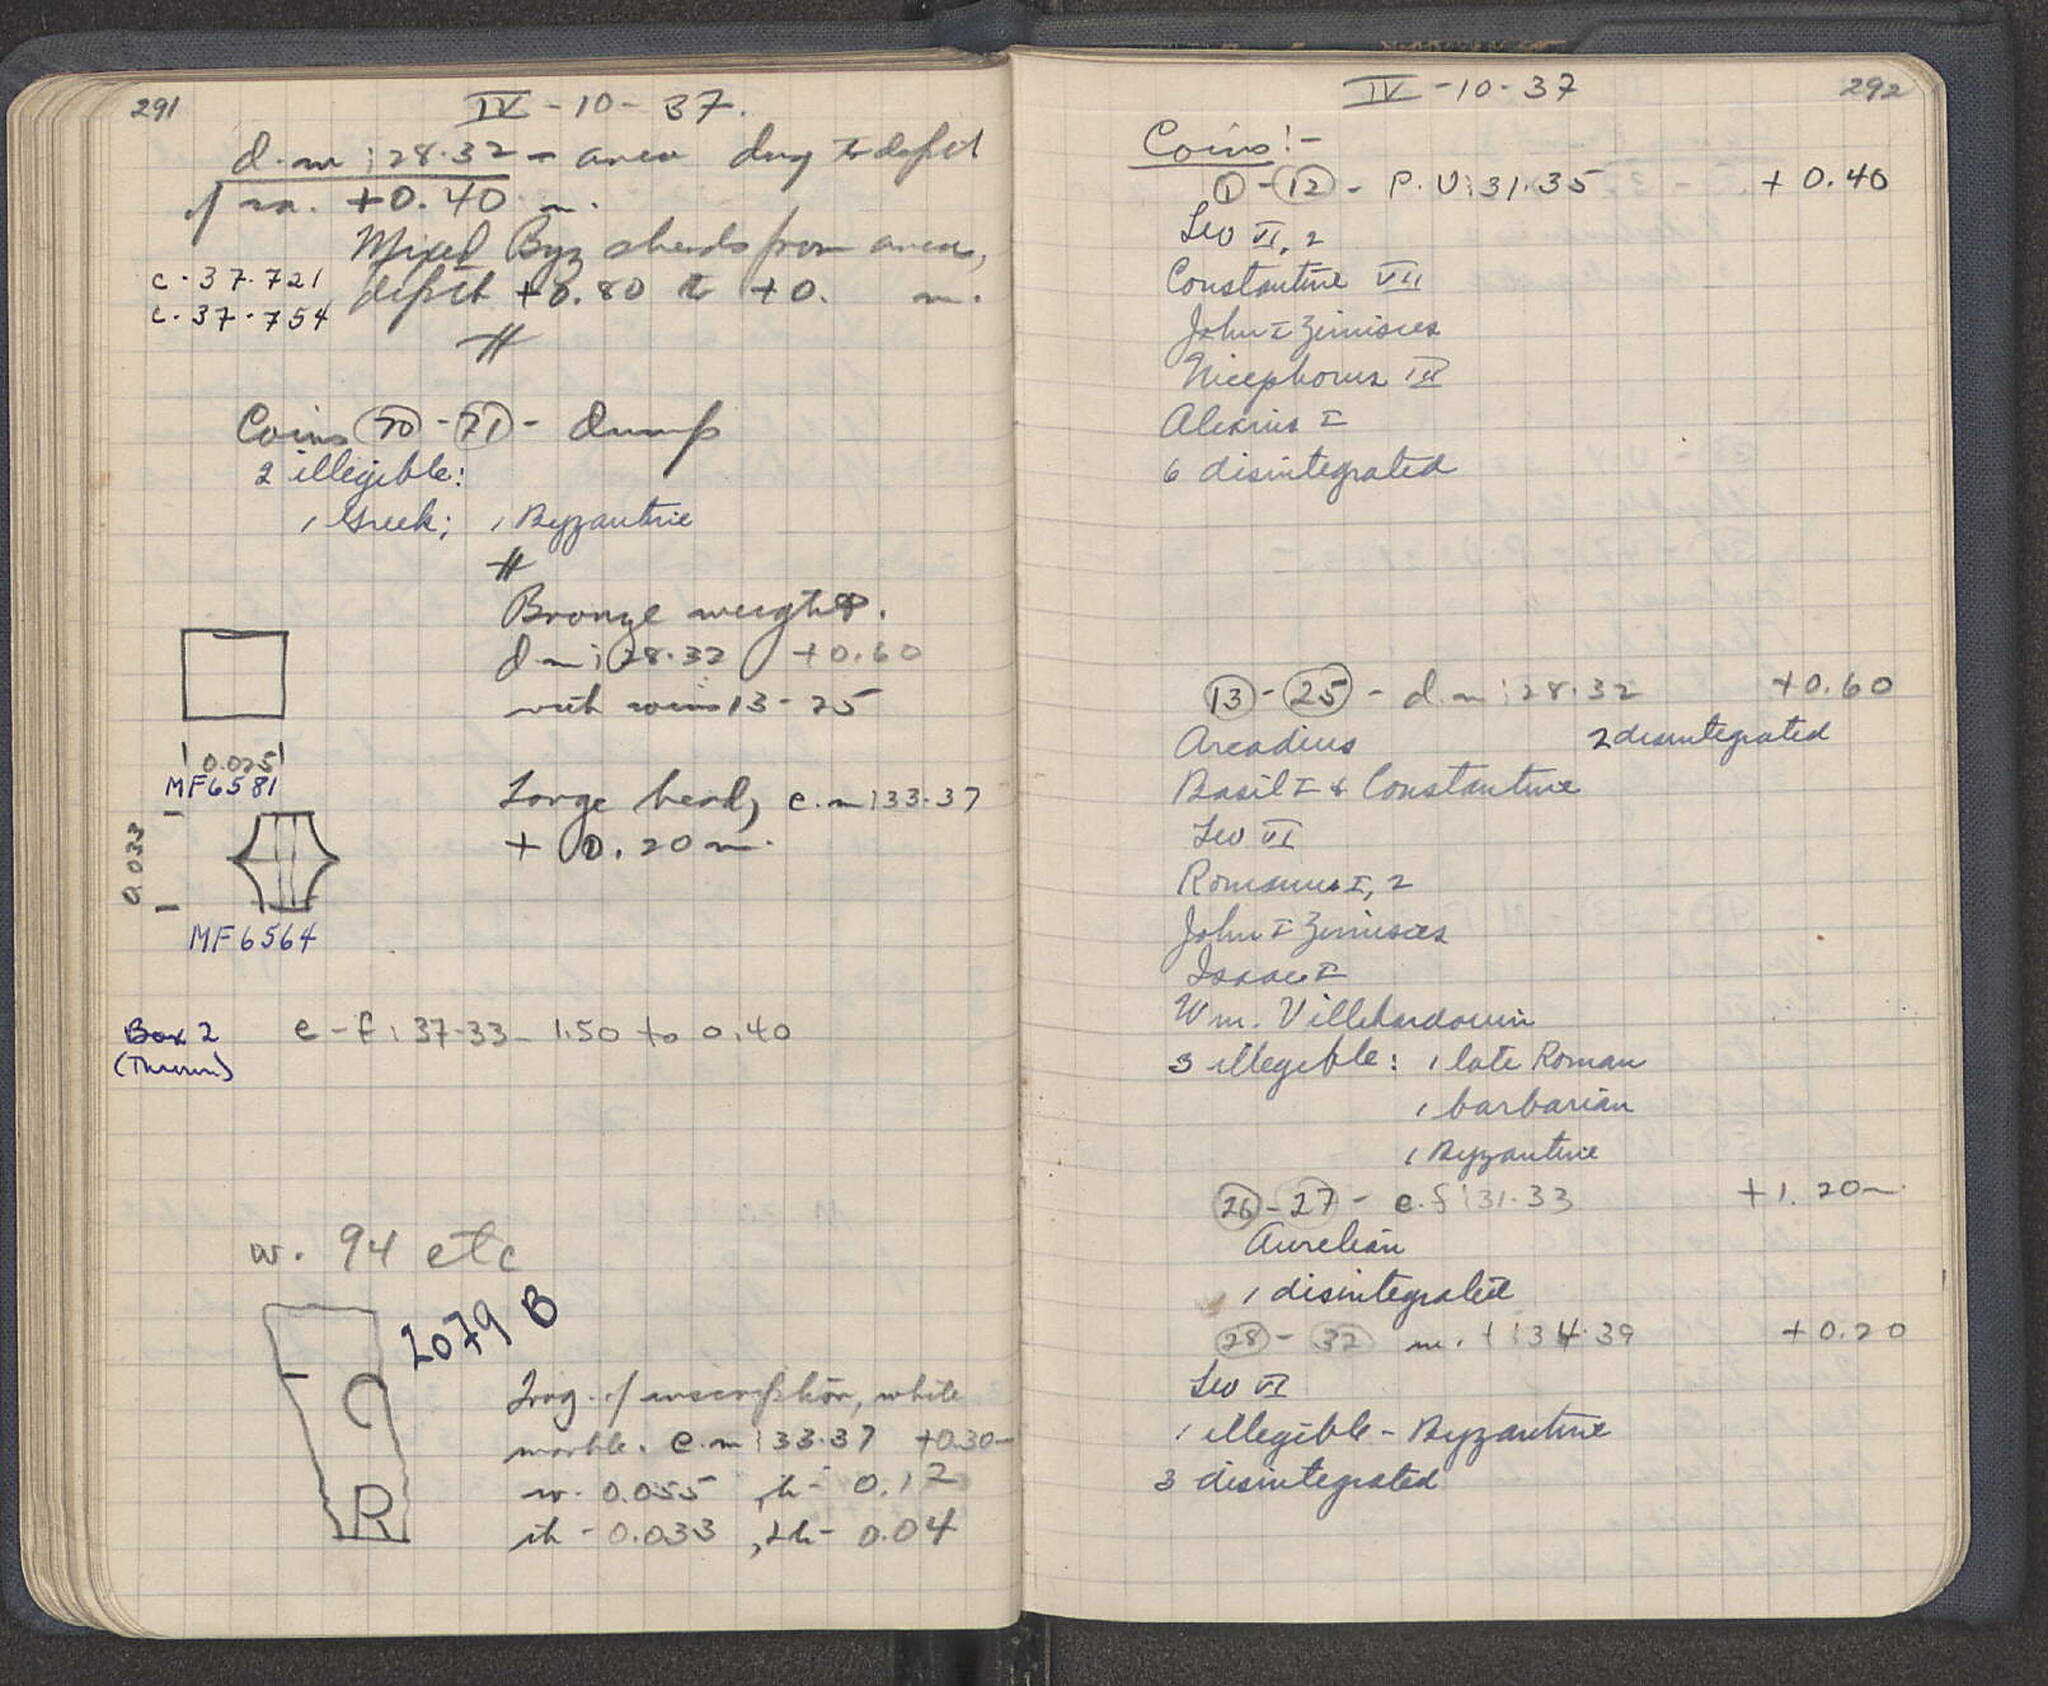 291
IV - 10 - 37.
d-m : 28-32 - area dug to depth
of ca. +0.40 m.
Mixed Byz sherds from area,
c-37-721
depth +0.80 to +0. m.
c-37-754
#
Coins 70 - 71 - dump
2 illegible:
1 Greek; 1 Byzantine
#
Bronze weight.
d-m : 28-32 +0.60
with coins 13-25
0.025
MF6581
Large bead, e-m : 33-37
+ 0.20 m.
0.033
MF6564
Box 2 e-f : 37-33 - 1.50 to 0.40
(Thrown)
w. 94 etc
2079 B
R
Frag. of inscription, white
marble. e-m : 33-37 +0.30
w- 0.055 , h- 0.12
th - 0.033 , lh - 0.04
292
IV - 10 - 37
Coins:-
1 - 12 - P-U : 31-35 + 0.40
Leo VI, 2
Constantine VII
John I Zimisces
Nicephorus III
Alexius I
6 disintegrated
13 - 25 - d-m : 28-32 +0.60
Arcadius 2 disintegrated
Basil I & Constantine
Leo VI
Romanus I, 2
John I Zimisces
Isaac I
Wm. Villehardouin
3 illegible: 1 late Roman
1 barbarian
1 Byzantine
26 - 27 - e-f : 31-33 +1.20 m.
Aurelian
1 disintegrated
28 - 32 m- t : 34-39 +0.20
Leo VI
1 illegible - Byzantine
3 disintegrated